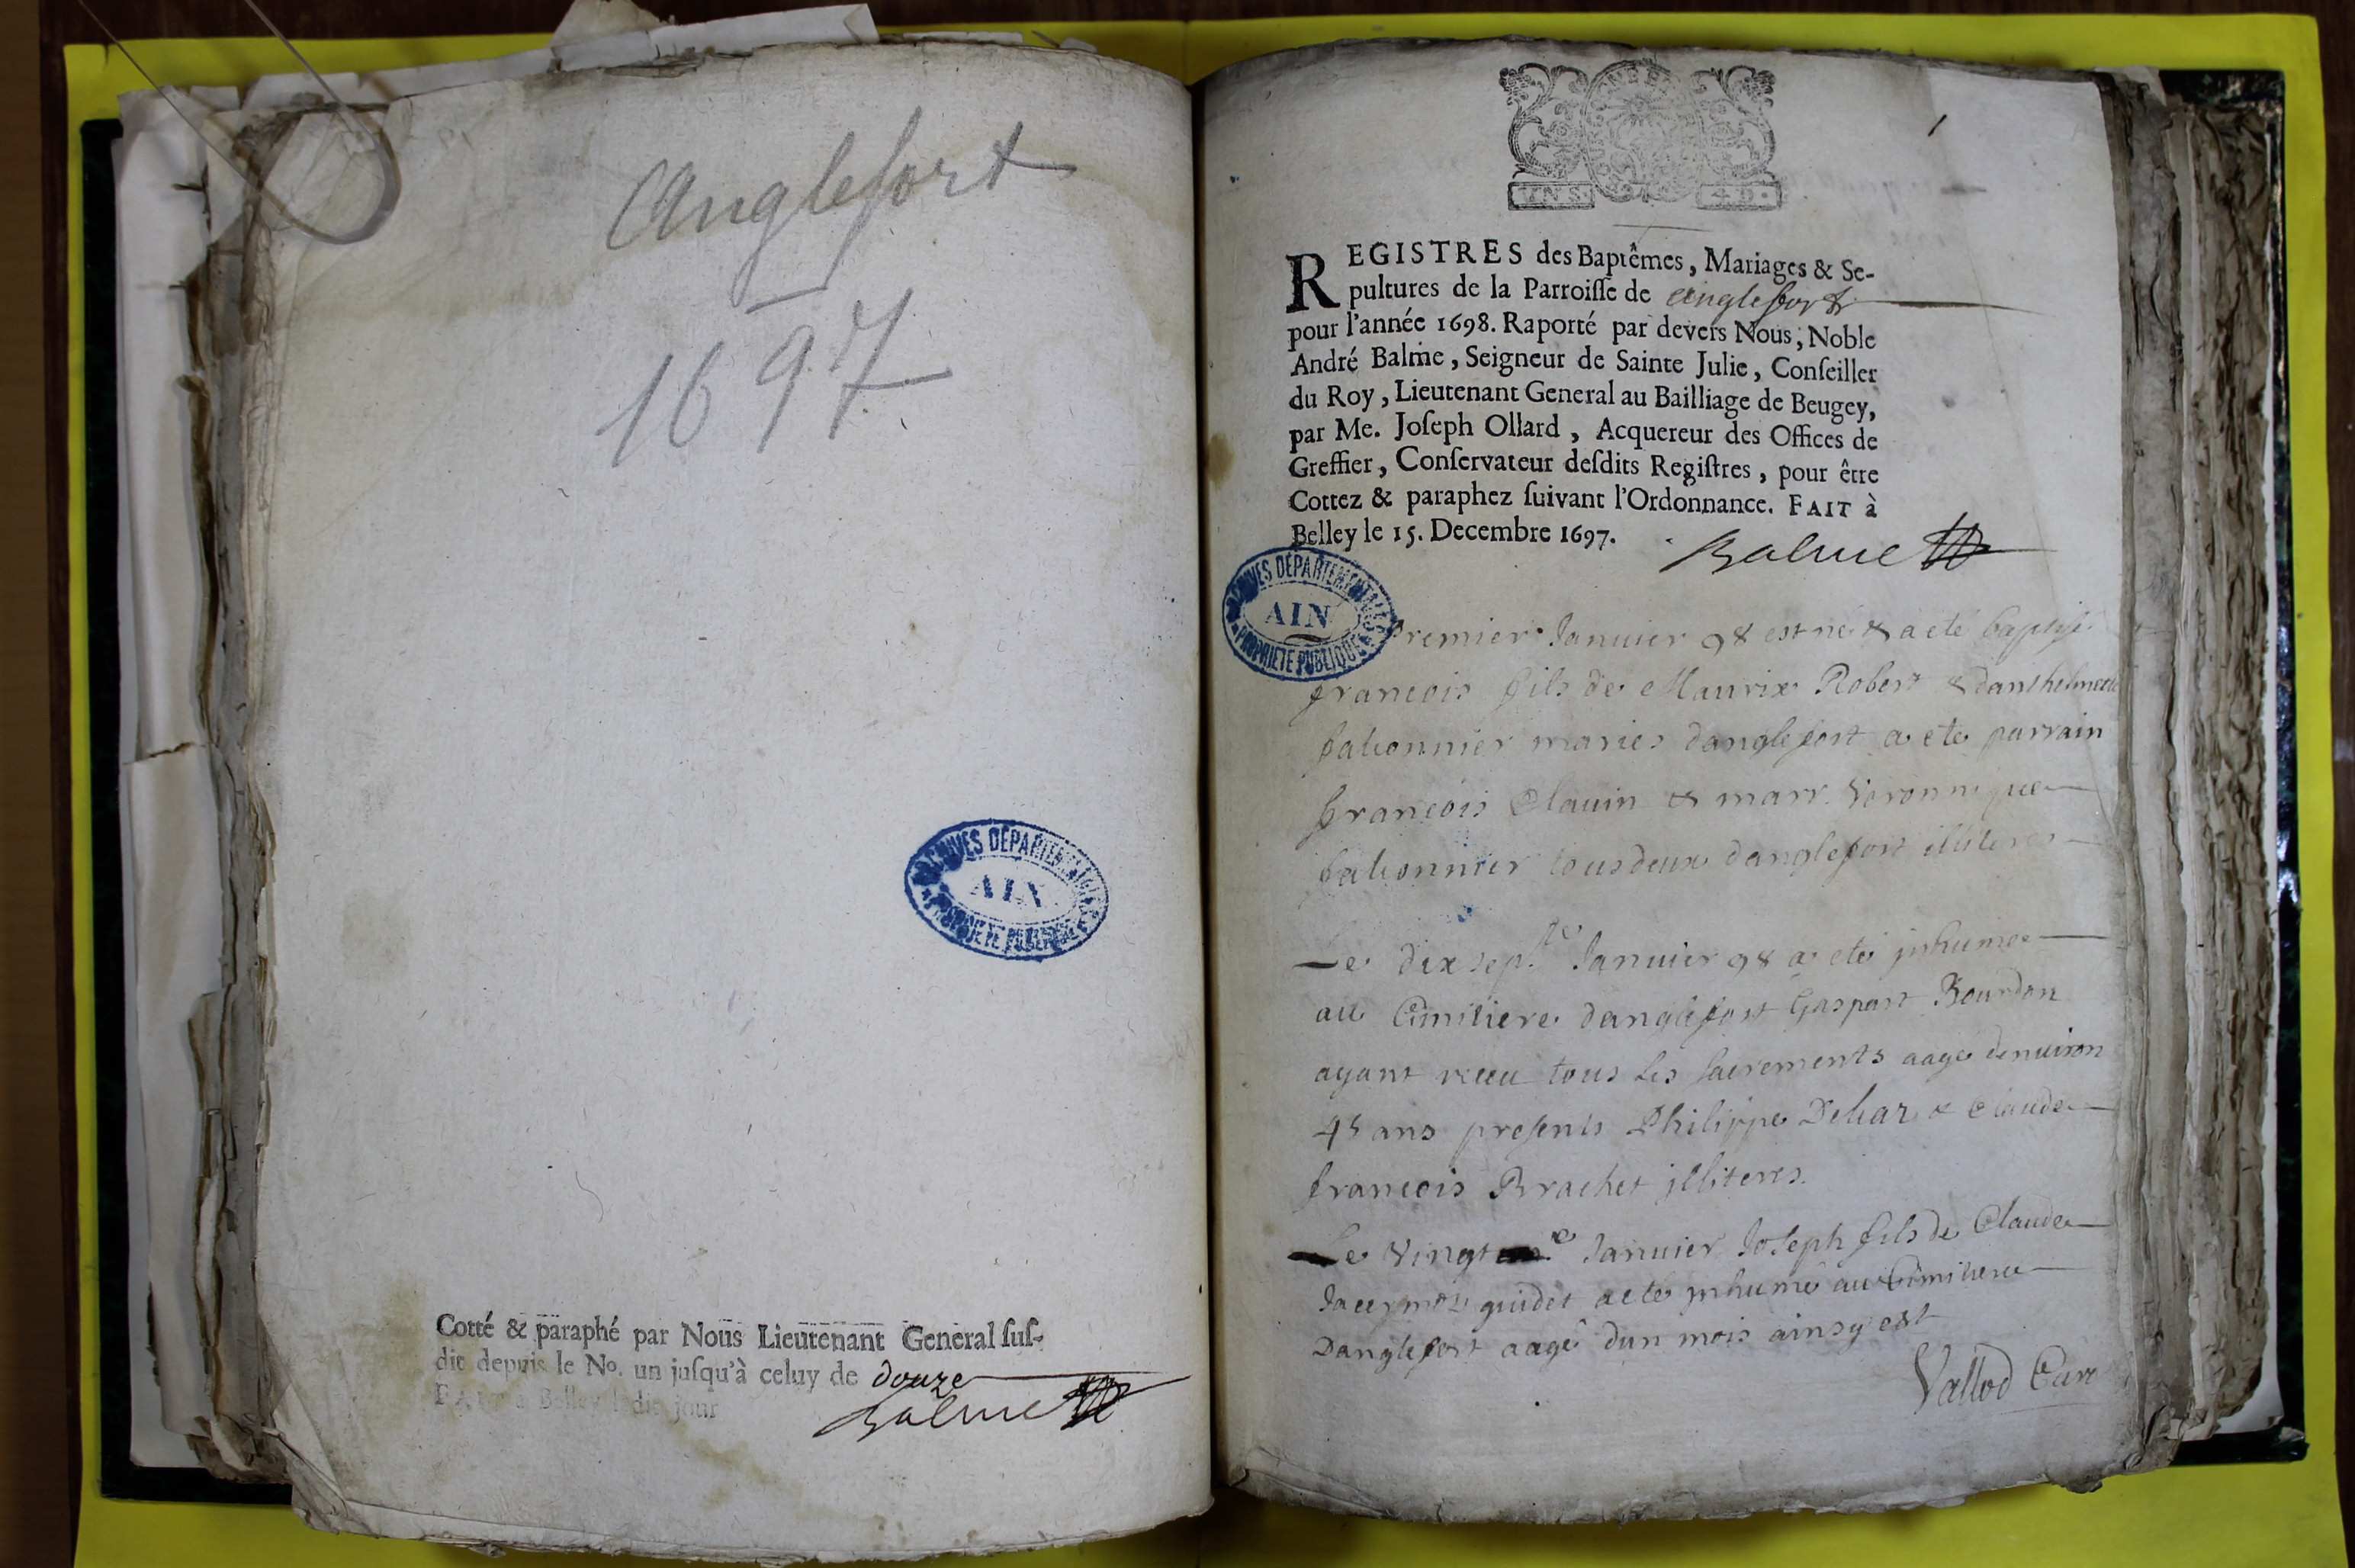 Anglefort
1697
ARCHIVES DÉPARTEMENTALES
AIN
PROPRIÉTÉ PUBLIQUE
Cotté & paraphé par Nous Lieutenant General ſuſ-
dit depuis le No. un juſqu'à celuy de douze
FAIT à Belley ledit jour
Balme
1
REGISTRES des Baptêmes, Mariages & Se-
pultures de la Parroiſſe de anglefort
pour l'année 1698. Raporté par devers Nous, Noble
André Balme, Seigneur de Sainte Julie, Conſeiller
du Roy, Lieutenant General au Bailliage de Beugey,
par Me. Joſeph Ollard, Acquereur des Offices de
Greffier, Conſervateur deſdits Regiſtres, pour être
Cottez & paraphez ſuivant l'Ordonnance. FAIT à
Belley le 15. Decembre 1697.
Balme
ARCHIVES DÉPARTEMENTALES
AIN
PROPRIÉTÉ PUBLIQUE
premier Januier 98 est né & a eté baptisé
francois fils de Maurix Robert & danthelmette
falionnier maries danglefort a ete parrain
francois Clauin & marr. Veronnique
falionnier tous deux danglefort illiteres
Le dix sept.e Januier 98 a eté inhume
au Cimitiere danglefort Gaspart Bourdon
ayant receu tous les sacrements aagé denuiron
45 ans presents Philippe & Claude
francois Brachet illiteres.
Le vingt e Januier Joseph fils de Claude
guidet a eté inhumé au Cimitiere
Danglefort aagé dun mois ainsy est
Vallod Curé